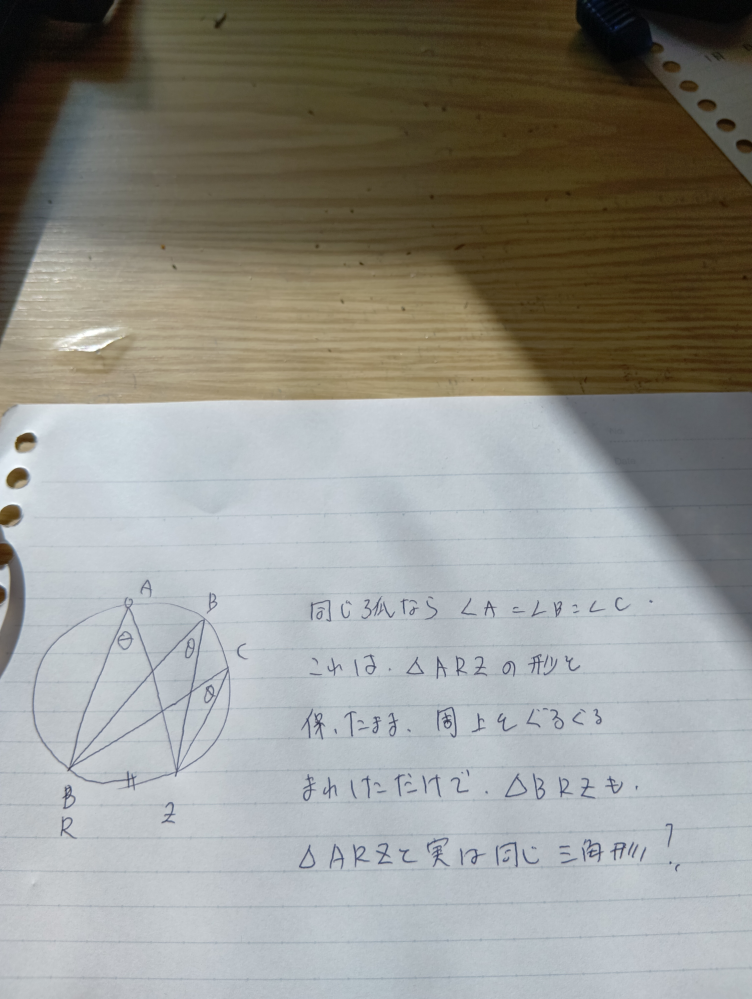 A
B
C
θ
θ
θ
B
R
Z
同じ弧なら ∠A=∠B=∠C.
これは. △ARZの形を
保ったまま、周上をぐるぐる
まわしただけで、△BRZも.
△ARZと実は同じ三角形?